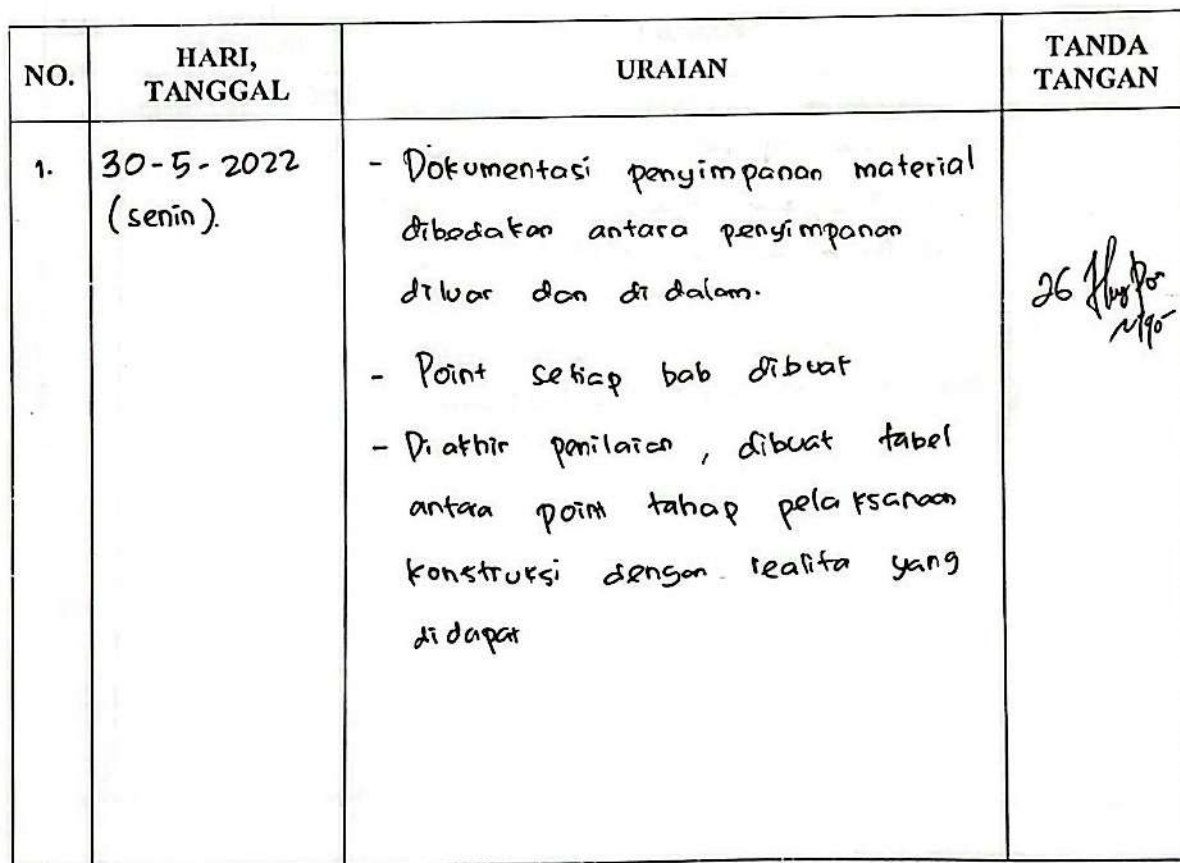 NO.
HARI,
TANGGAL
URAIAN
TANDA
TANGAN
1.
30-5-2022
(senin).
- Dokumentasi penyimpanan material
dibedakan antara penyimpanan
diluar dan di dalam.
- Point setiap bab dibuat
- Di akhir penilaian, dibuat tabel
antara point tahap pelaksanaan
konstruksi dengan realita yang
di dapat